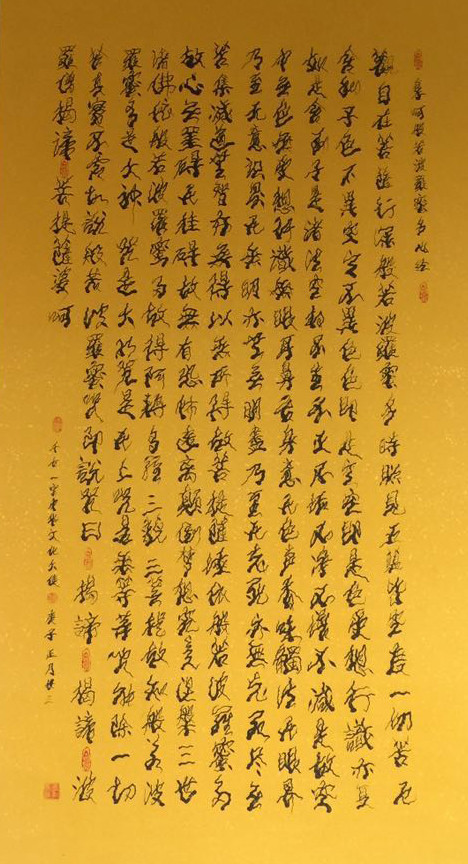 摩呵般若波羅蜜多心经
觀自在菩薩行深般若波羅蜜多時照見五蘊皆空度一切苦厄
舍利子色不異空空不異色色即是空空即是色受想行識亦復
如是舍利子是諸法空相不生不滅不垢不淨不增不減是故空
中無色無受想行識無眼耳鼻舌身意無色声香味觸法無眼界
乃至无意识界無無明亦無無明盡乃至無老死亦無老死尽無
苦集滅道無智亦無得以無所得故菩提薩埵依般若波羅蜜多
故心無罣礙無罣礙故無有恐怖遠離顛倒夢想究竟涅槃三世
諸佛依般若波羅蜜多故得阿耨多羅三藐三菩提故知般若波
羅蜜多是大神咒是大明咒是無上咒是無等等咒能除一切
苦真實不虛故說般若波羅蜜咒即說咒曰揭諦揭諦波
羅僧揭諦菩提薩婆呵
庚子正月